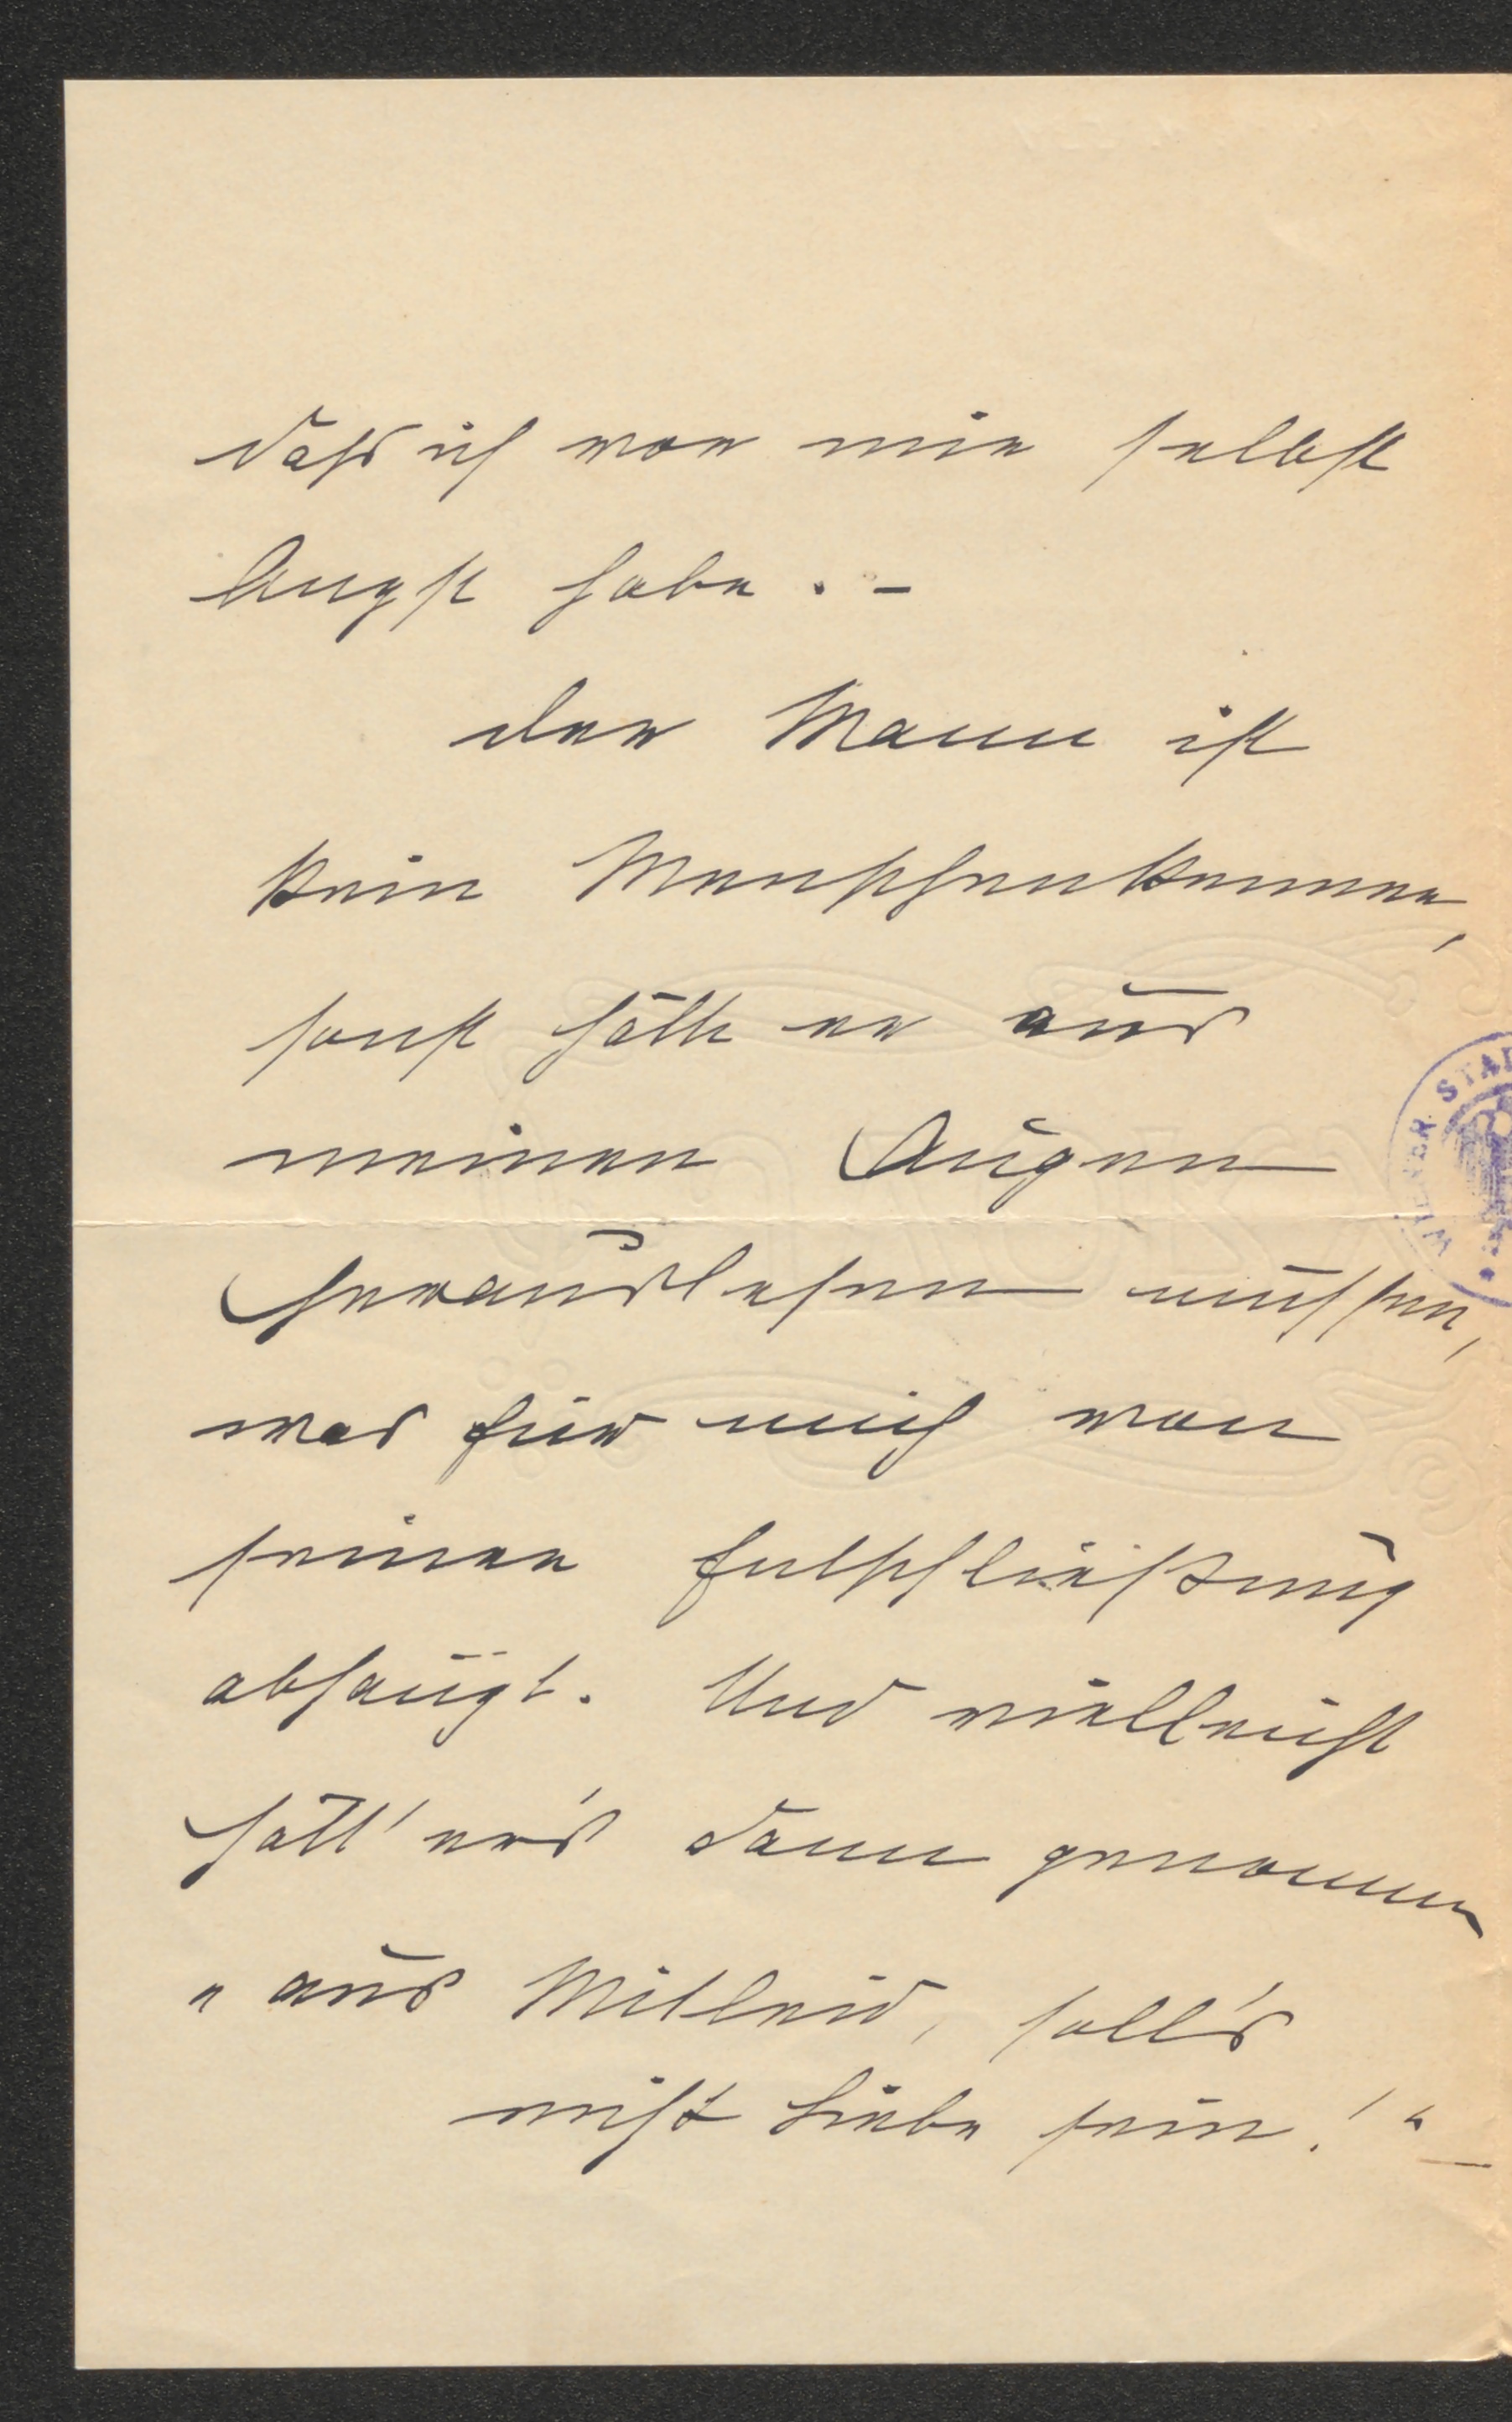 dass ich vor mir selbst
Angst habe. -
der Mann ist
kein Menschenkenner,
sonst hätte er aus
meinen Augen
herauslesen müssen,
was für mich von
seiner Entschließung
abhängt. Und vielleicht
hätt' er's dann genommen
„aus Mitleid, soll's
nicht Liebe sein!"
WIENER STA